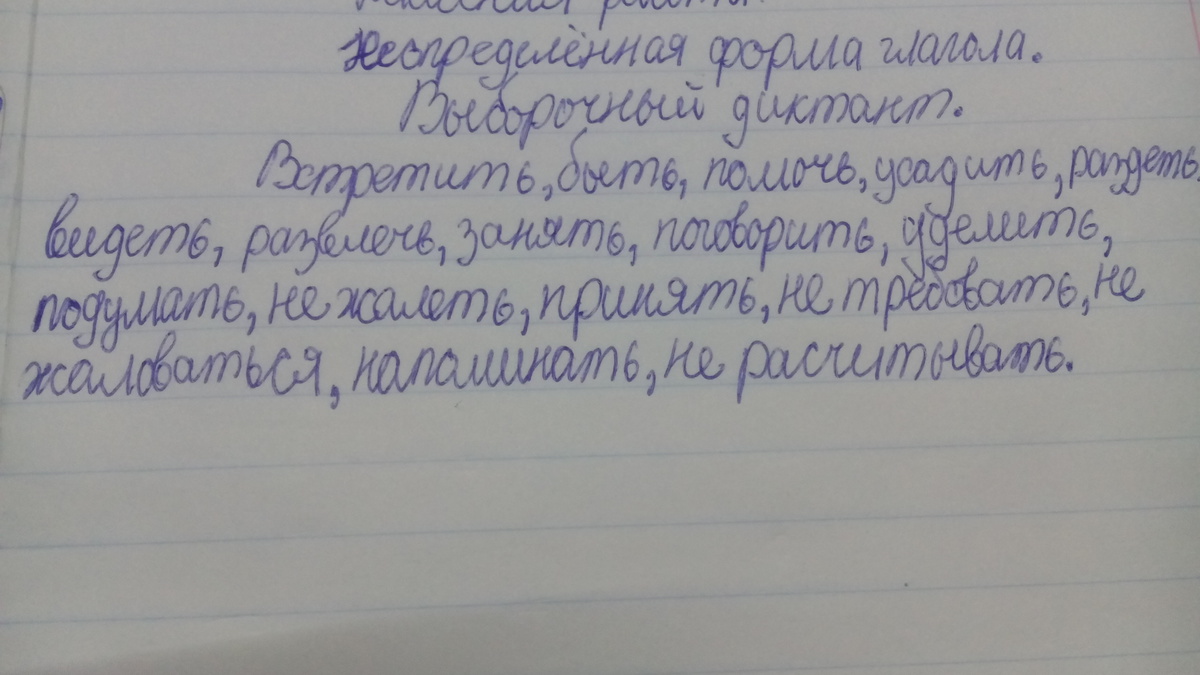 Неопределённая форма глагола.
Выборочный диктант.
Встретить, быть, помочь, усадить, раздеть,
видеть, развлечь, занять, поговорить, уделить,
подумать, не жалеть, принять, не требовать, не
жаловаться, напоминать, не расчитывать.